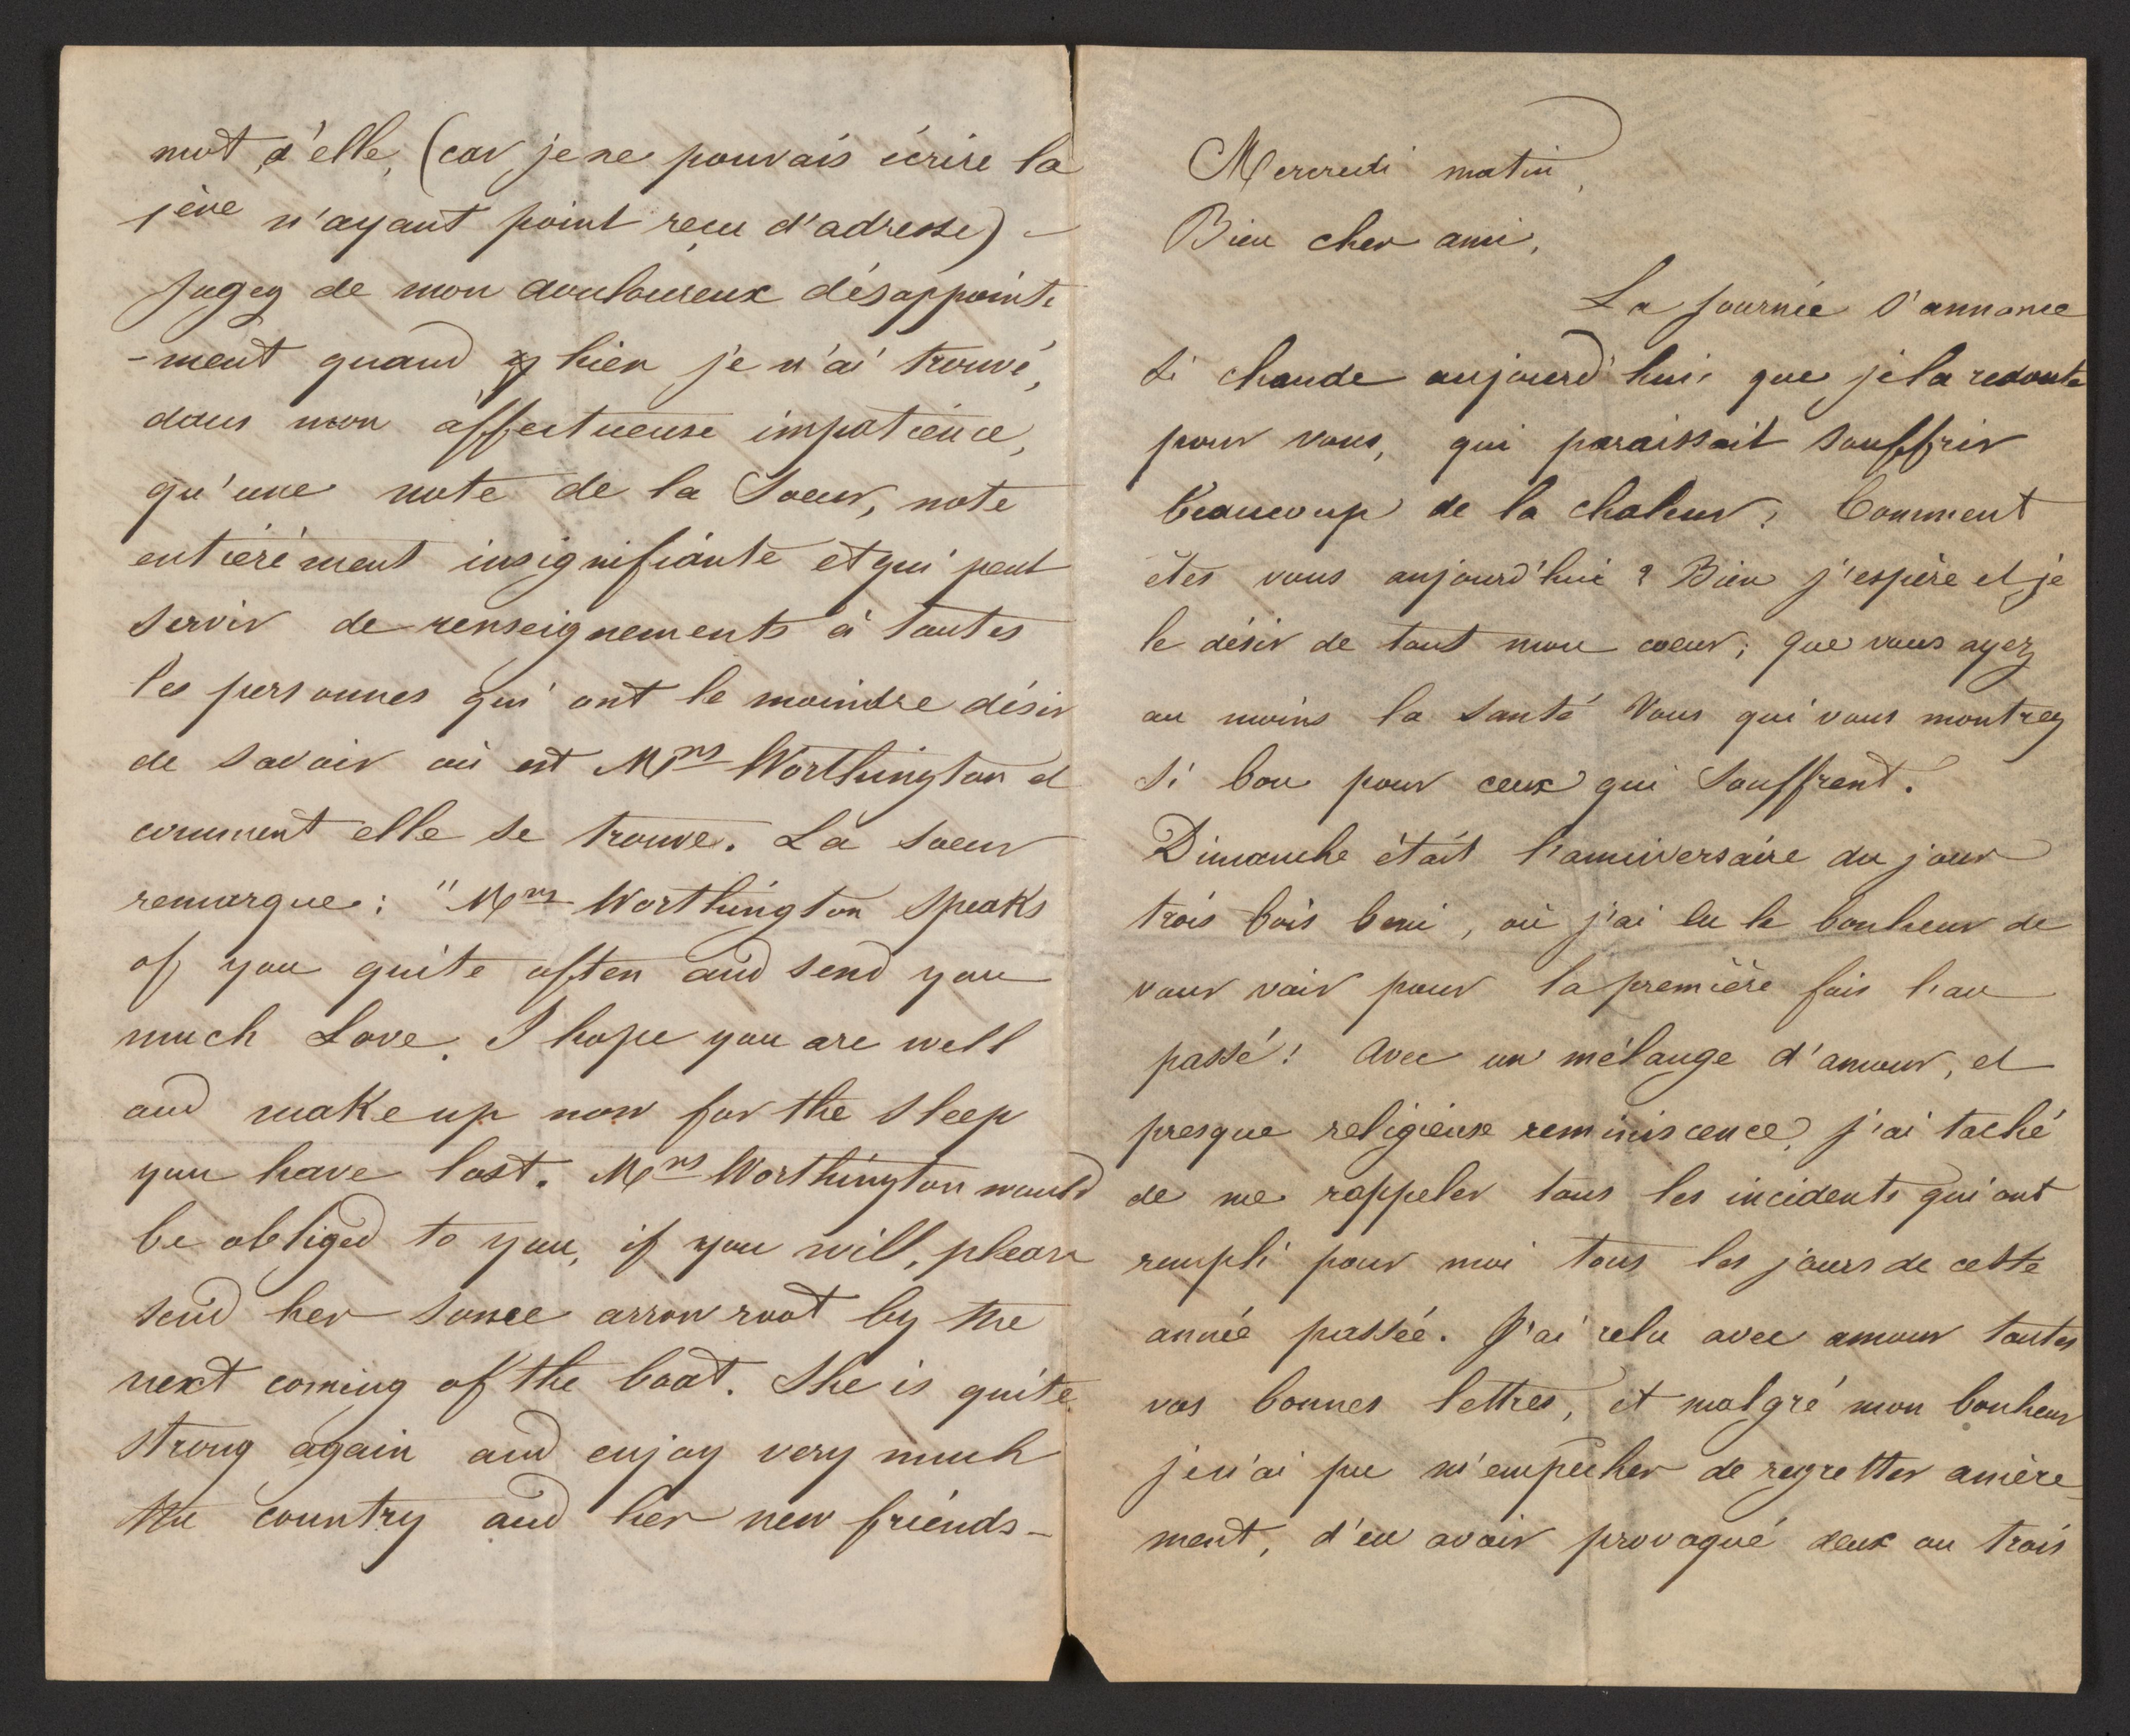 mot d'elle, (car je ne pouvais écrire la
1ère n'ayant point reçu d'adresse) -
Jugez de mon douloureux désappointe
-ment quand hier je n'ai trouvé,
dans mon affectueuse impatience,
qu'une note de la Soeur, note
entièrement insignifiante et qui peut
servir de renseignements à toutes
les personnes qui ont le moindre désir
de savoir où est Mrs Worthington et
comment elle se trouve. La soeur
remarque: "Mrs Worthington speaks
of you quite often and send you
much Love. I hope you are well
and make up now for the sleep
you have lost. Mrs Worthington would
be obliged to you, if you will, please
send her some arrow root by the
next coming of the boat. She is quite
strong again and enjoy very much
the country and her new friends-
Mercredi matin,
Bien cher ami,
La journée s'annonce
si chaude aujourd'hui que je la redoute
pour vous, qui paraissait souffrir
beaucoup de la chaleur; Comment
êtes vous aujourd'hui? Bien j'espère et je
le désir de tout mon coeur; que vous ayez
au moins la santé Vous qui vous montrez
si bon pour ceux qui souffrent.
Dimanche était l'anniversaire du jour
trois fois beni, où j'ai eu le bonheur de
vour voir pour la première fois l'an
passé! Avec un mélange d'amour, et
presque religieuse reminiscence, j'ai taché
de me rappeler tous les incidents qui ont
rempli pour moi tous les jours de cette
année passée. J'ai relu avec amour toutes
vos bonnes lettres, et malgré mon bonheur
je n'ai pu m'empêcher de regretter amère
ment, d'en avoir provoqué deux ou trois